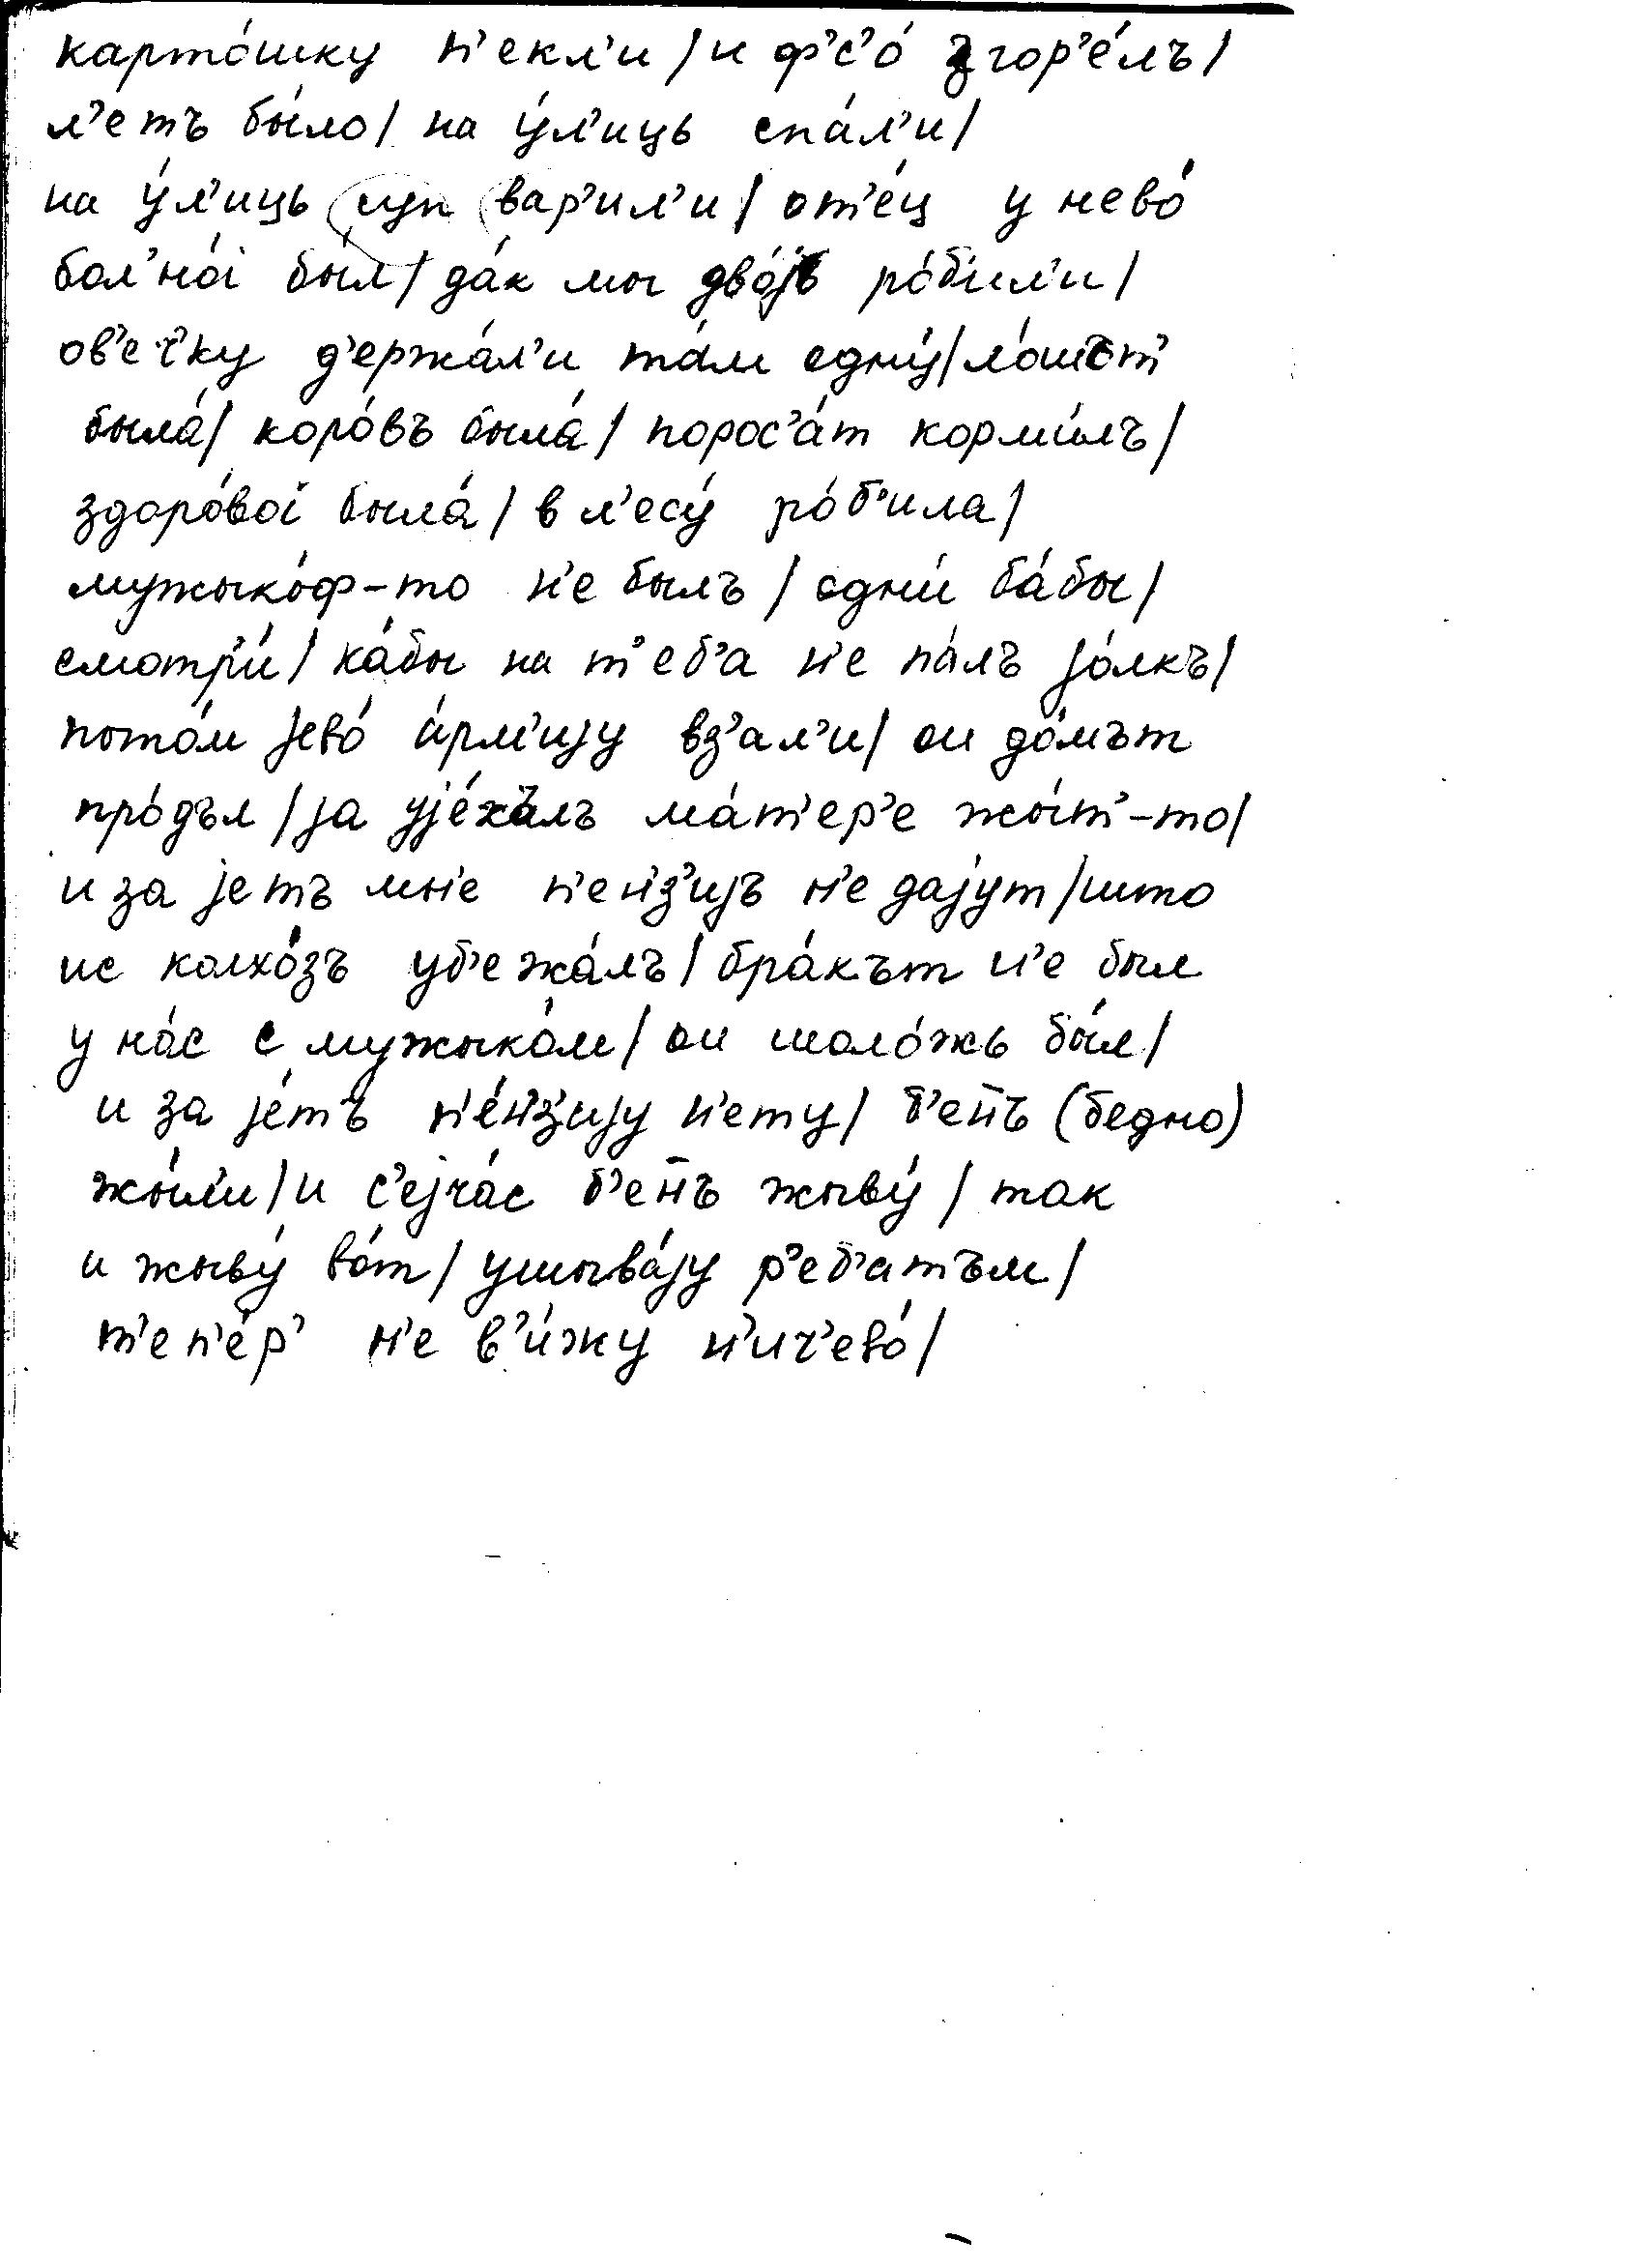 карто́шку п'екл'и / и ф'с'о́ згор'е́лъ /
л'етъ бы́ло / на у́л'иць спа́л'и /
на у́л'иць суп вар'ил'и / от'е́ц у нево́
бол'но́і бы́л / да́к мы дво́jь ро́б'ил'и /
ов'еч'ку д'ержа́л'и та́м одну́ / ло́шът'
была́ / коро́въ была́ / порос'а́т корми́лъ /
здоро́воі была́ / в л'есу́ ро́б'ила /
мужыко́ф-то н'е былъ / одни́ ба́бы /
смотр'и́ / ка́бы на т'еб'а н'е па́лъ jо́лкъ /
пото́м jево́ а́рм'иjу вз'ал'и / он до́мът
про́дъл / jа уjе́хълъ ма́т'ер'е жы́т'-то /
и за jетъ мн'е п'ен'з'иjъ н'е даjут / што
ис колхо́зъ уб'ежа́лъ / бра́кът н'е был
у на́с с мужыко́м / он моло́жь бы́л /
и за jе́тъ п'е́н'з'иjу н'ету / б'ен̄ъ (бедно)
жы́л'и / и с'еjча́с б'ен̄ъ жыву́ / так
и жыву́ во́т / ушыва́jу р'еб'атъм /
т'еп'е́р' н'е в'и́жу н'ич'ево́ /